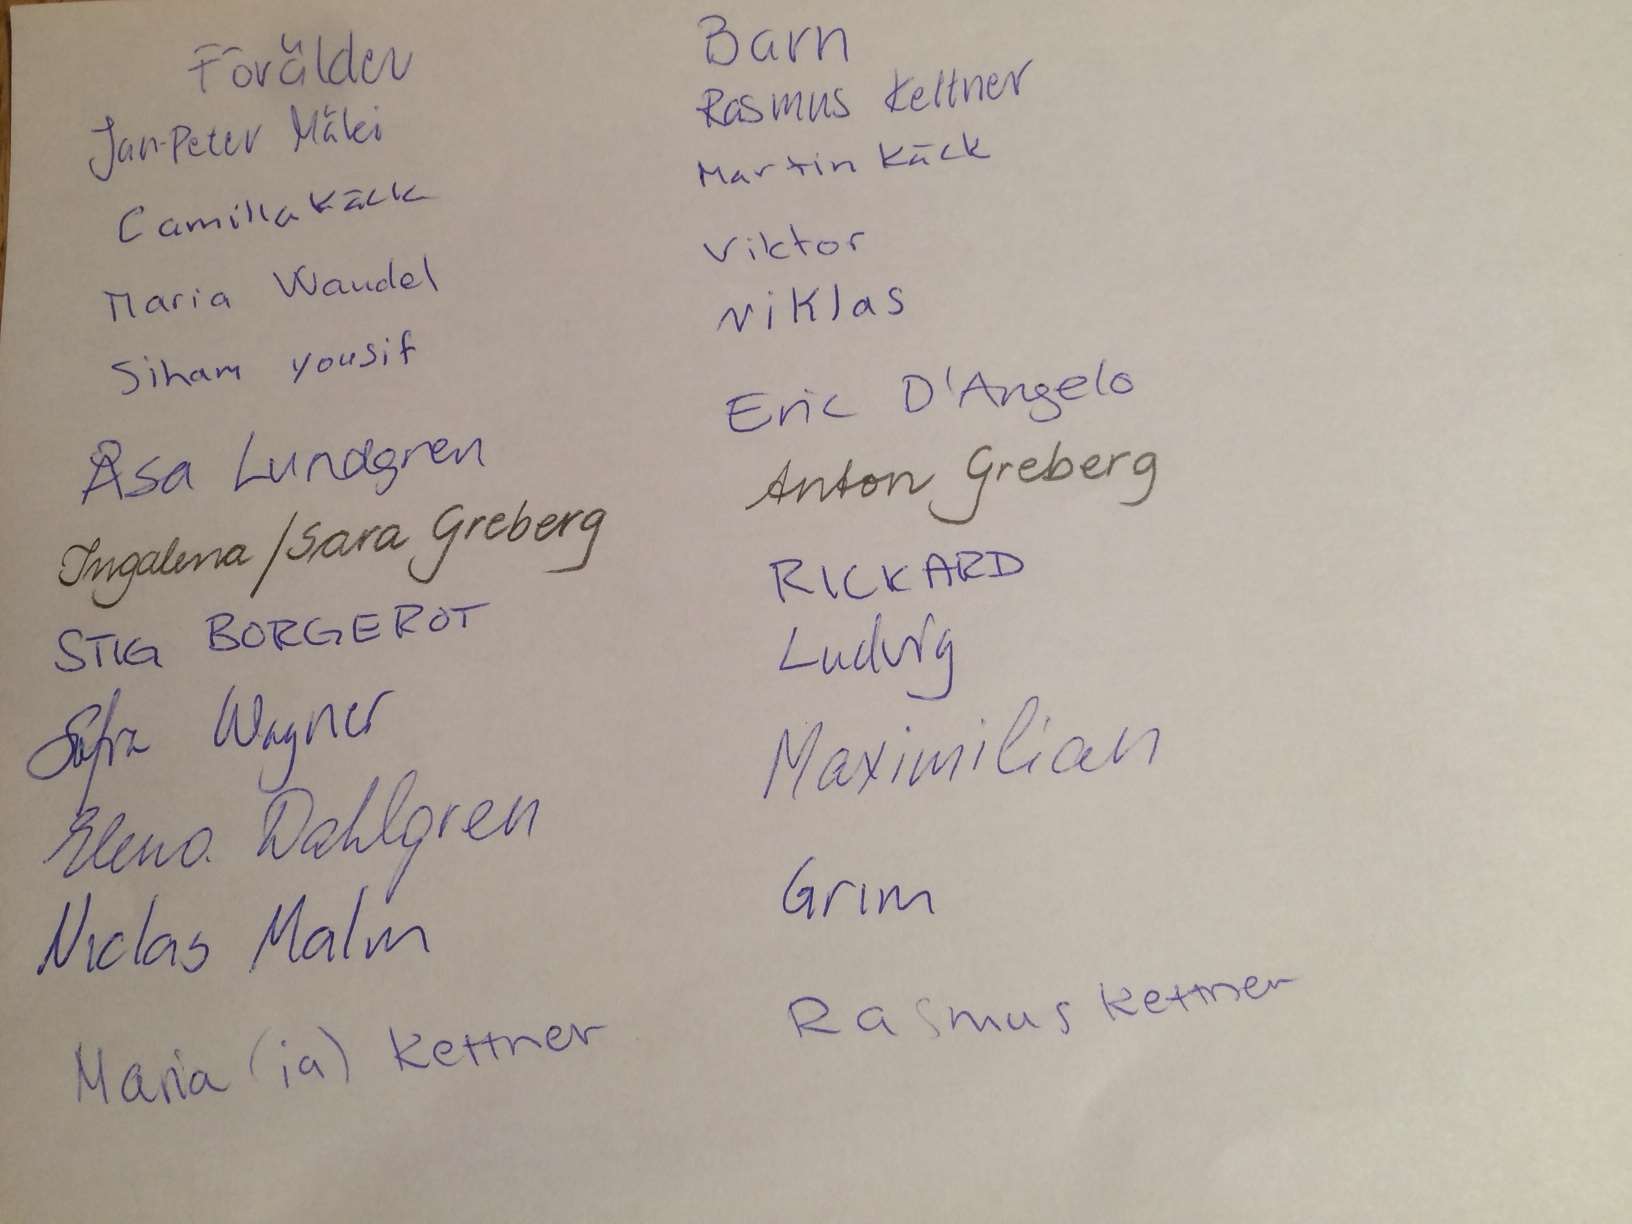 Förälder Barn
Jan-Peter Mäki Rasmus Kettner
Camilla Käck Martin Käck
Maria Wandel Viktor
Siham yousif Niklas
Åsa Lundgren Eric D'Angelo
Ingalena/Sara Greberg Anton Greberg
STIG BORGEROT RICKARD
Wagner Ludvig
Elena Dahlgren Maximilian
Niclas Malm Grim
Maria (ia) Kettner Rasmus Kettner